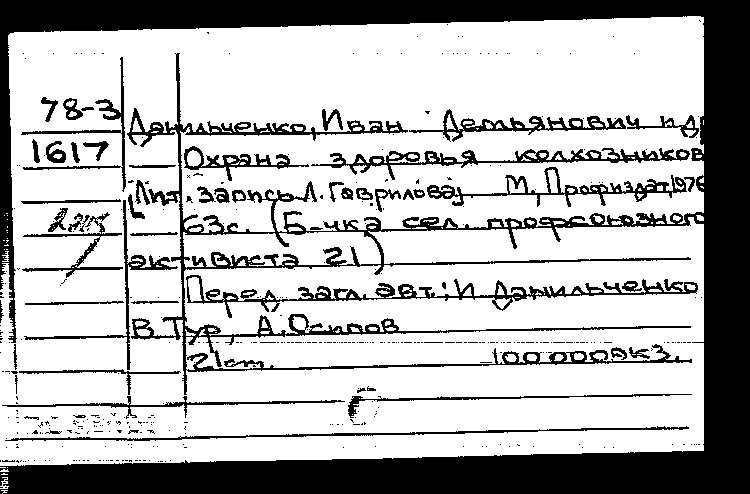 78-3 Данильченко, Иван Демьянович и др
1617 Охрана здоровья колхозников
[Лит. запись Л. Гаврилова] М., Профиздат, 1976
63с. (Б-чка сел. профсоюзного
активиста 21)
Перед загл. авт.: И Данильченко
В. Тур, А. Осипов
21 см. 100 000 экз.